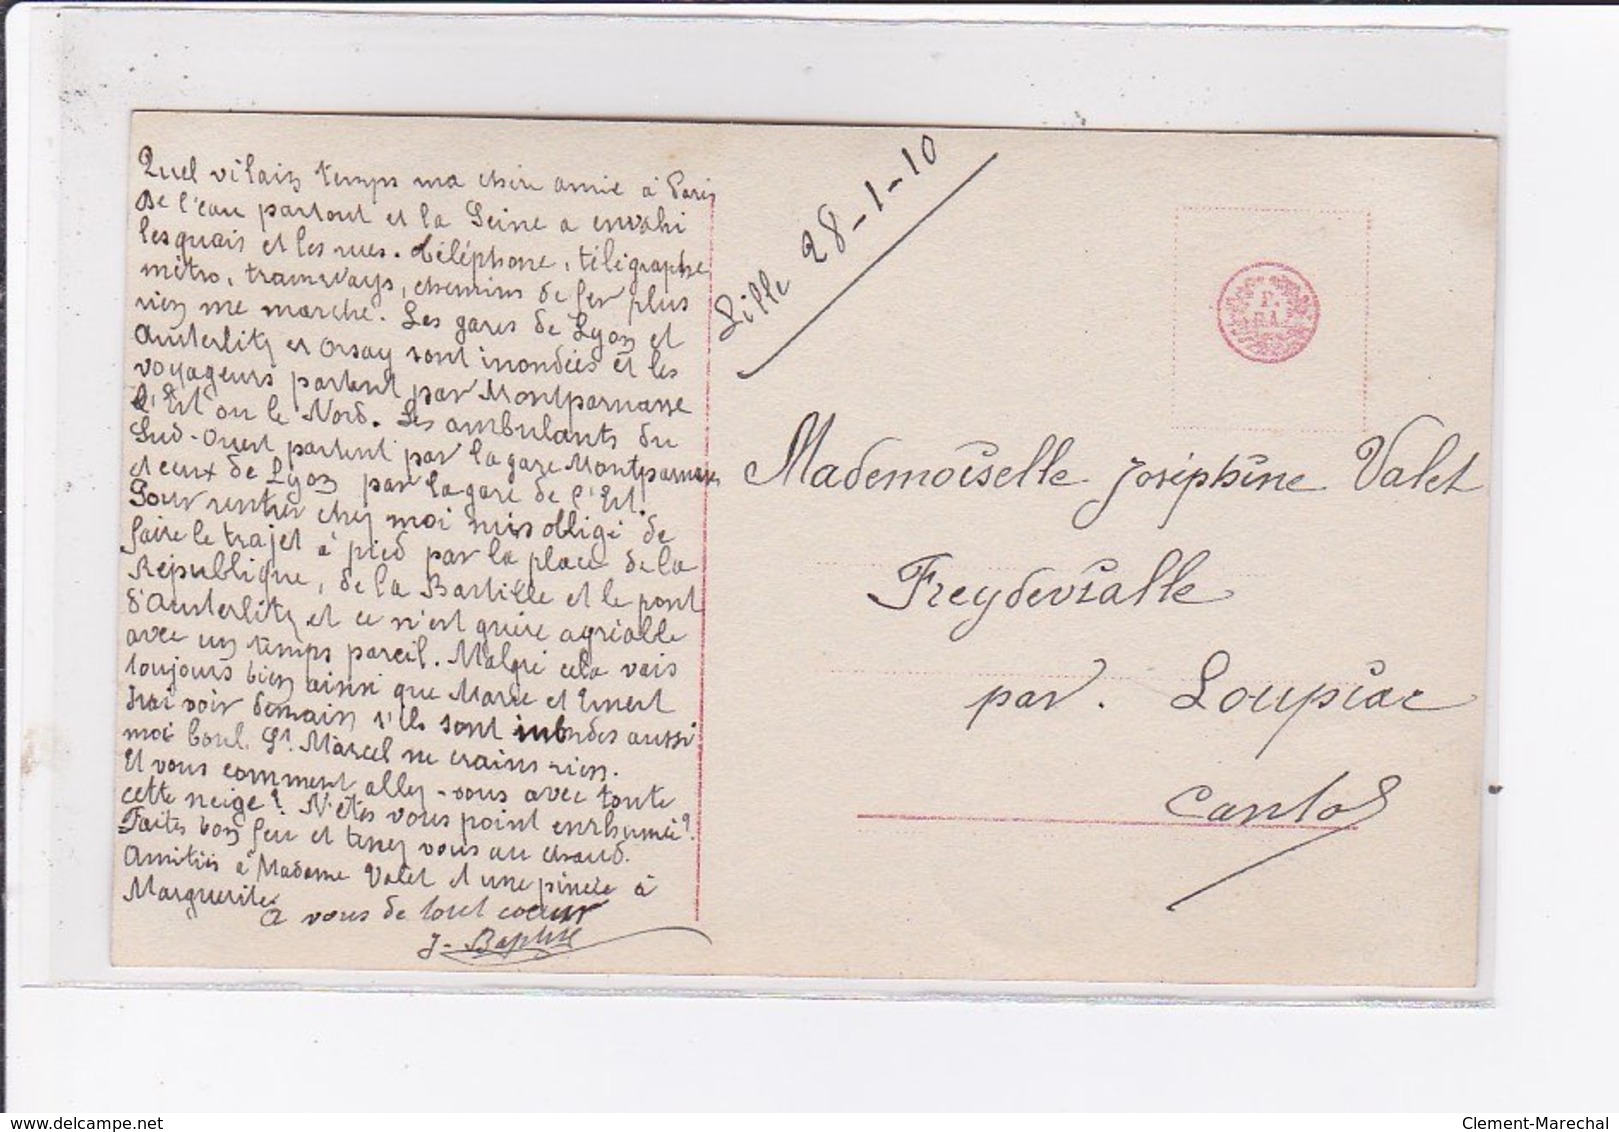 Quel vilain temps ma chère amie à Paris
De l'eau partout et la Seine a envahi
les quais et les rues. Téléphone, télégraphe
métro, tramways, chemins de fer plus
rien ne marche. Les gares de Lyon et
Austerlitz et Orsay sont inondées et les
voyageurs partent par Montparnasse
l'Est ou le Nord. Les ambulants du
Sud-Ouest partent par la gare Montparnasse
et ceux de Lyon par la gare de l'Est.
Pour rentrer chez moi suis obligé de
faire le trajet à pied par la place de la
République, de la Bastille et le pont
d'Austerlitz et ce n'est guère agréable
avec un temps pareil. Malgré cela vais
toujours bien ainsi que Marie et Ernest
Irai voir demain s'ils sont inondés aussi
moi boul. St Marcel ne crains rien.
Et vous comment allez-vous avec toute
cette neige? N'êtes vous point enrhumée?
Faites bon feu et tenez vous au chaud.
Amitiés à Madame Valet et une pincée à
Marguerite
à vous de tout coeur
J-Baptiste
Lille 28-1-10
Mademoiselle Joséphine Valet
Freydevialle
par. Loupiac
Cantal
Clement-Marechal